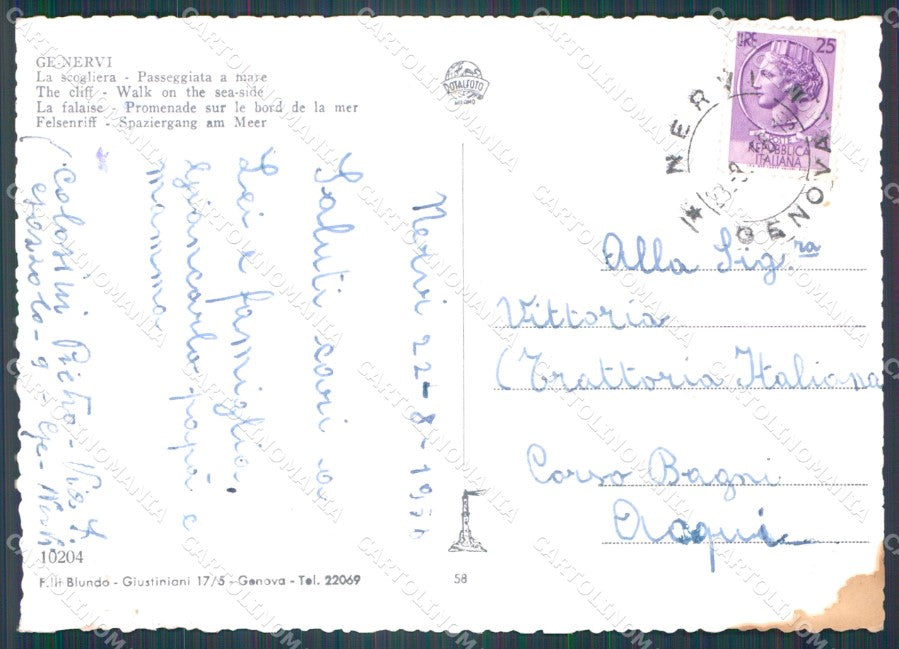 GE-NERVI
La scogliera - Passeggiata a mare
The cliff - Walk on the sea-side
La falaise - Promenade sur le bord de la mer
Felsenriff - Spaziergang am Meer
TOTALFOTO
MILANO
LIRE 25
POSTE
REPUBBLICA
ITALIANA
NERVI
GENOVA
Nervi 22-8-1956
Saluti cari a
Lei e famiglia,
giancarlo papà e
mamma
Colossini Pietro - Via A.
10204
F.lli Blundo - Giustiniani 17/5 - Genova - Tel. 22069
58
Alla Sig.ra
Vittoria
(Trattoria Italiana
Corso Bagni
Acqui
CARTOLINOMANIA